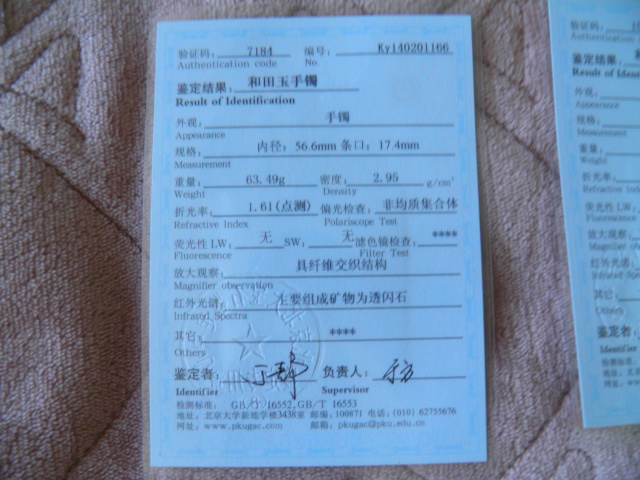 验证码: 7184 编号: Ky140201166
Authentication code No.
鉴定结果: 和田玉手镯
Result of Identification
外观: 手镯
Appearance
规格: 内径: 56.6mm 条口: 17.4mm
Measurement
重量: 63.49g 密度: 2.95 g/cm³
Weight Density
折光率: 1.61(点测) 偏光检查: 非均质集合体
Refractive Index Polariscope Test
荧光性 LW: 无 SW: 无 滤色镜检查: ****
Fluorescence Filter Test
放大观察: 具纤维交织结构
Magnifier observation
红外光谱: 主要组成矿物为透闪石
Infrared Spectra
其它: ****
Others
鉴定者: 负责人:
Identifier Supervisor
检测标准: GB/T 16552, GB/T 16553
地址: 北京大学新地学楼3438室 邮编: 100871 电话: (010) 62755676
网址: www.pkugac.com 邮箱: pkugac@pku.edu.cn
验证码:
Authentication
鉴定结果:
Result of Iden
外观:
Appearance
规格:
Measurement
重量:
Weight
折光率:
Refractive Index
荧光性 LW:
Fluorescence
放大观察:
Magnifier
红外光谱:
Infrared Spect
其它:
Others
鉴定者:
Identifier
检测标准:
地址:
网址: